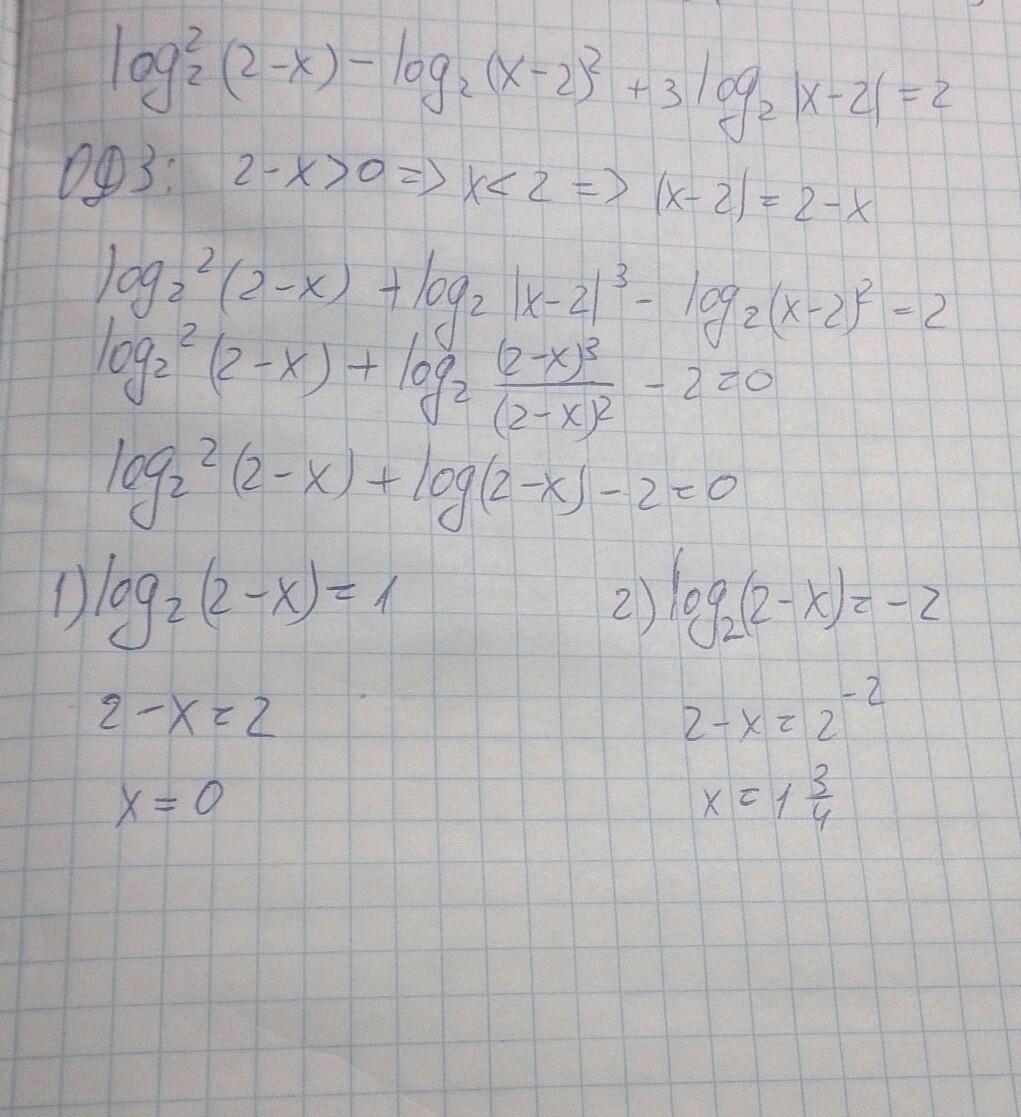 log₂²(2-x) - log₂(x-2)² + 3log₂|x-2| = 2
ОДЗ: 2-x>0 => x<2 => |x-2| = 2-x
log₂²(2-x) + log₂|x-2|³ - log₂(x-2)² = 2
log₂²(2-x) + log₂ (2-x)³/(2-x)² - 2 = 0
log₂²(2-x) + log(2-x) - 2 = 0
1) log₂(2-x) = 1 2) log₂(2-x) = -2
2-x = 2 2-x = 2⁻²
x = 0 x = 1 3/4